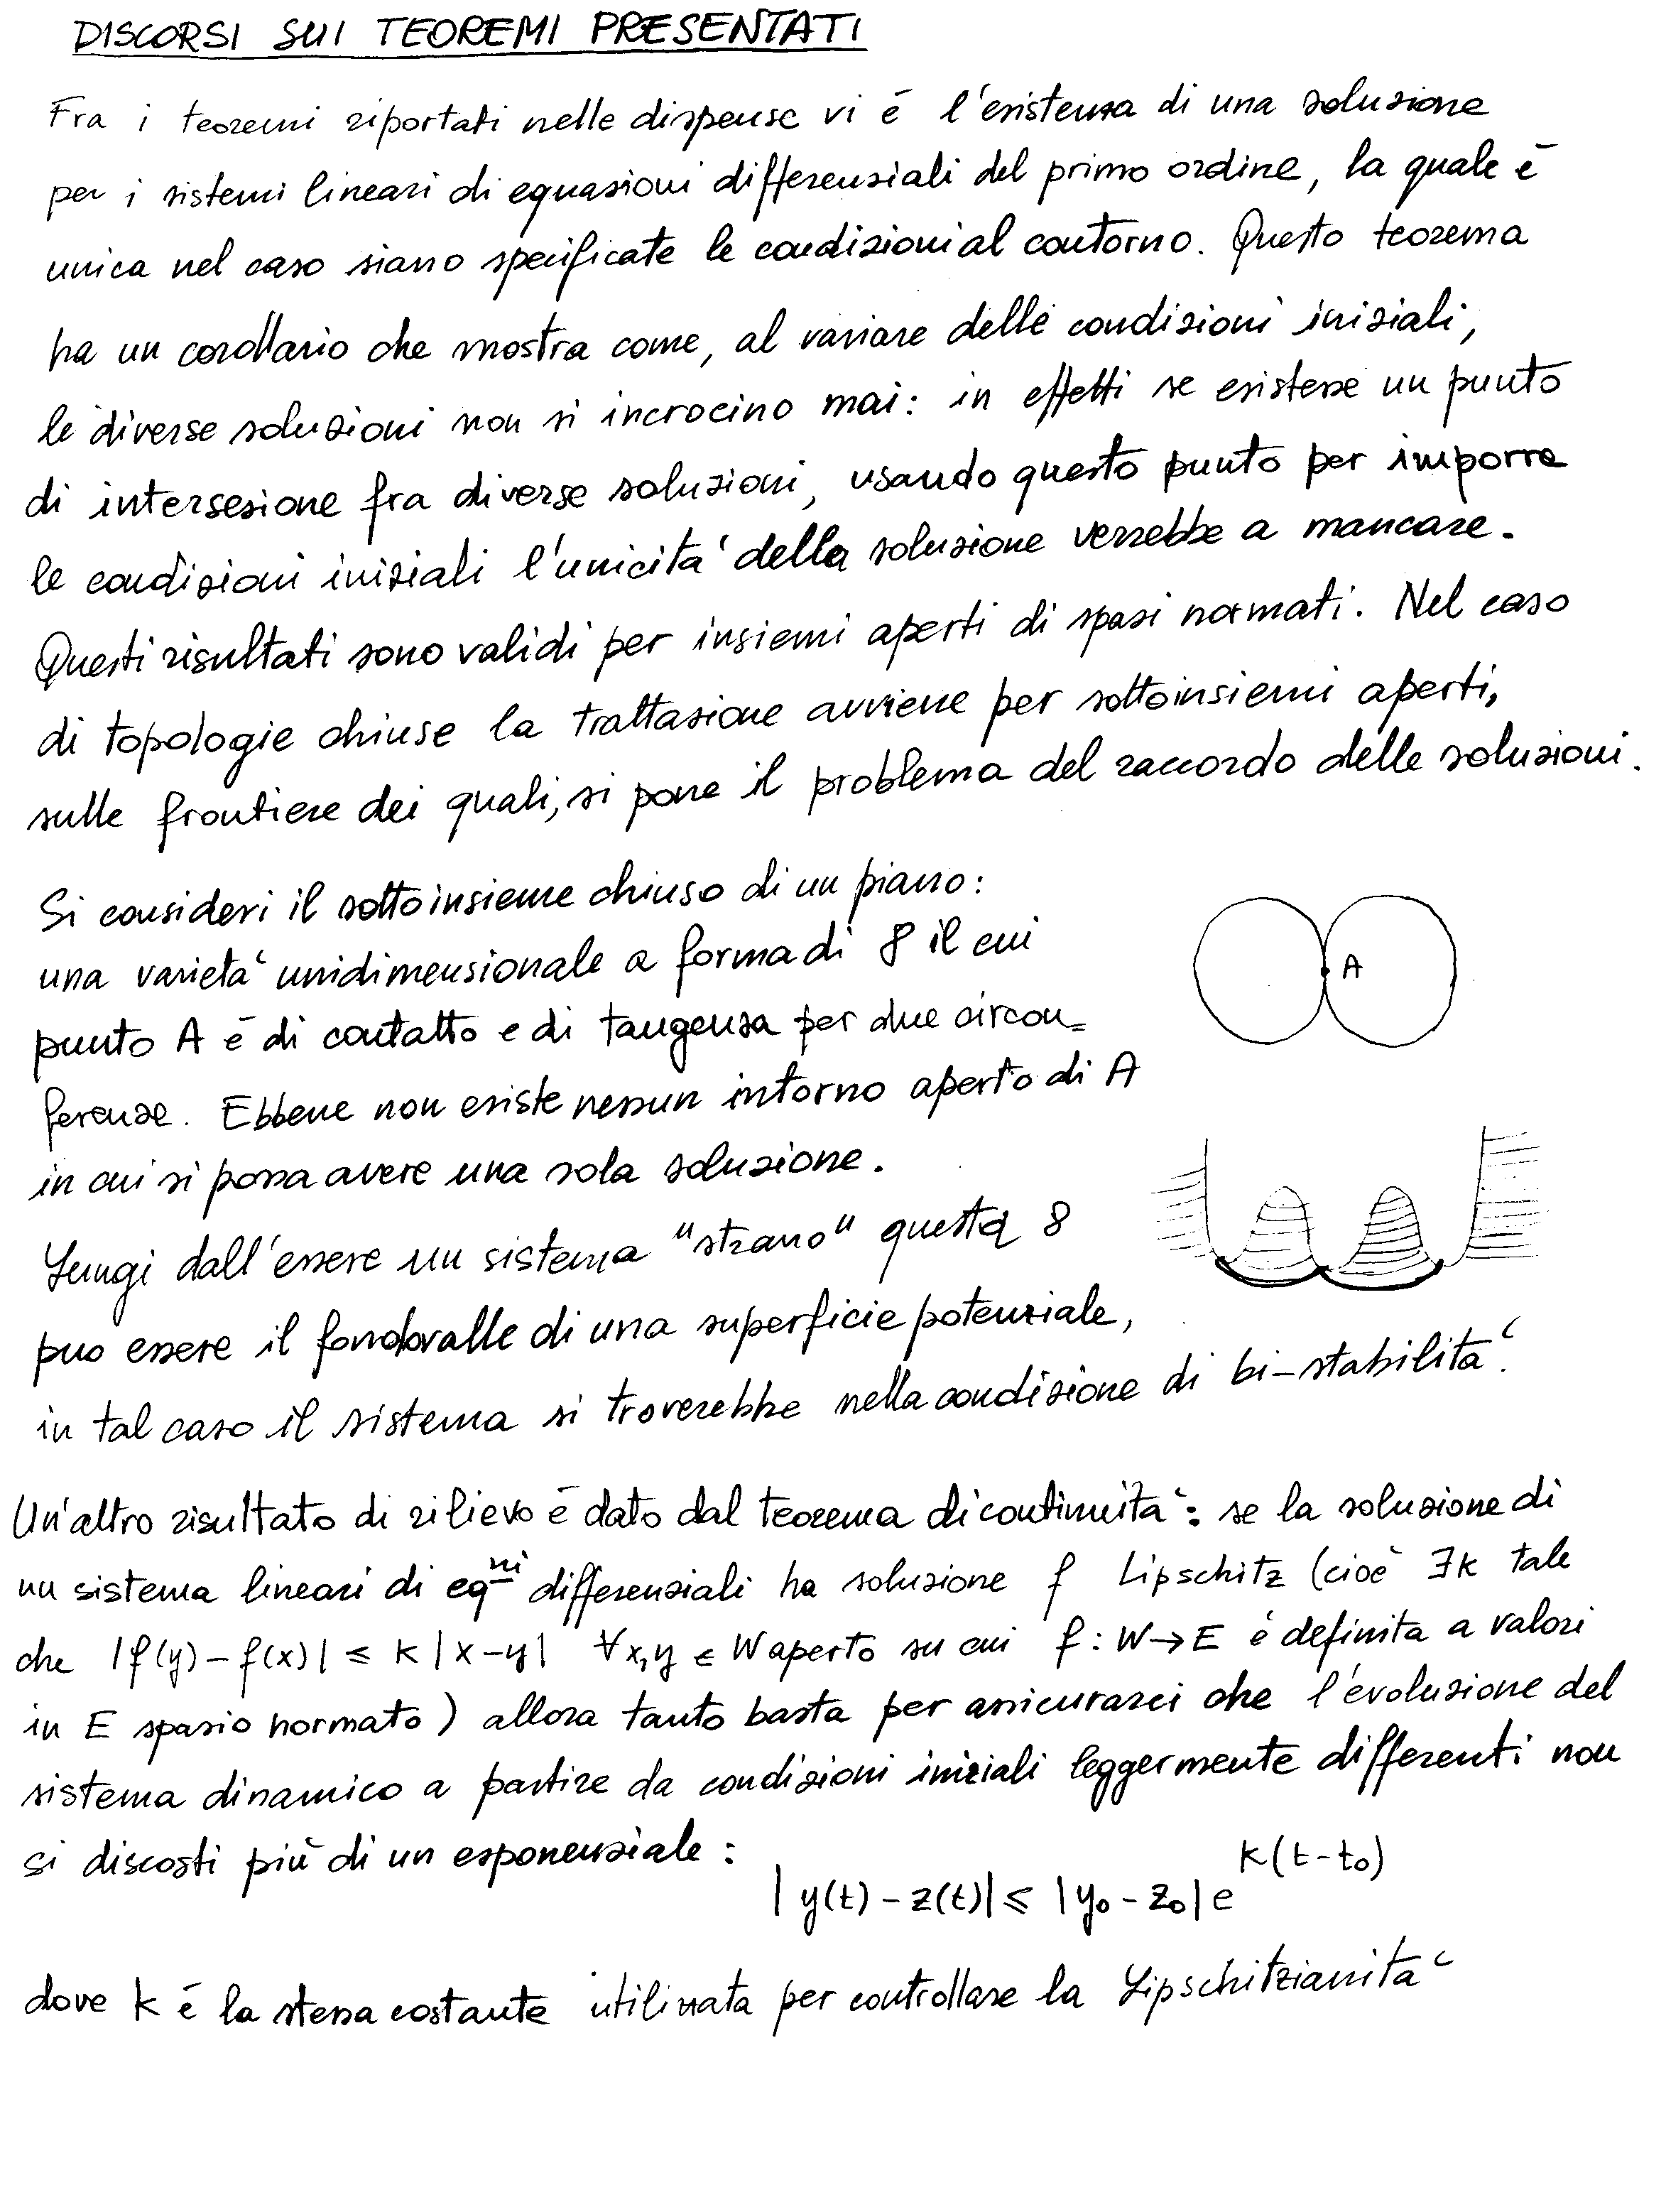 DISCORSI SUI TEOREMI PRESENTATI
Fra i teoremi riportati nelle dispense vi è l'esistenza di una soluzione
per i sistemi lineari di equazioni differenziali del primo ordine, la quale è
unica nel caso siano specificate le condizioni al contorno. Questo teorema
ha un corollario che mostra come, al variare delle condizioni iniziali,
le diverse soluzioni non si incrocino mai: in effetti se esistesse un punto
di intersezione fra diverse soluzioni, usando questo punto per imporre
le condizioni iniziali l'unicità della soluzione verrebbe a mancare.
Questi risultati sono validi per insiemi aperti di spazi normati. Nel caso
di topologie chiuse la trattazione avviene per sottoinsiemi aperti,
sulle frontiere dei quali, si pone il problema del raccordo delle soluzioni.
Si consideri il sottoinsieme chiuso di un piano:
una varietà unidimensionale a forma di 8 il cui
punto A è di contatto e di tangenza per due circon=
ferenze. Ebbene non esiste nessun intorno aperto di A
in cui si possa avere una sola soluzione.
A
Lungi dall'essere un sistema "strano" questa 8
puo essere il fondovalle di una superficie potenziale,
in tal caso il sistema si troverebbe nella condizione di bi-stabilità.
Un'altro risultato di rilievo è dato dal teorema di continuità: se la soluzione di
un sistema lineari di eq.ni differenziali ha soluzione f Lipschitz (cioè ∃k tale
che |f(y)-f(x)| ≤ K|x-y| ∀x,y ∈ W aperto su cui f: W→E è definita a valori
in E spazio normato) allora tanto basta per assicurarci che l'evoluzione del
sistema dinamico a partire da condizioni iniziali leggermente differenti non
si discosti più di un esponenziale:
|y(t)-z(t)| ≤ |y₀-z₀| e^{K(t-t₀)}
dove k è la stessa costante utilizzata per controllare la Lipschitzianità